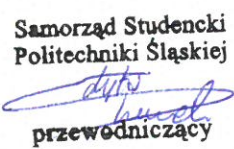 Samorząd Studencki
Politechniki Śląskiej
przewodniczący